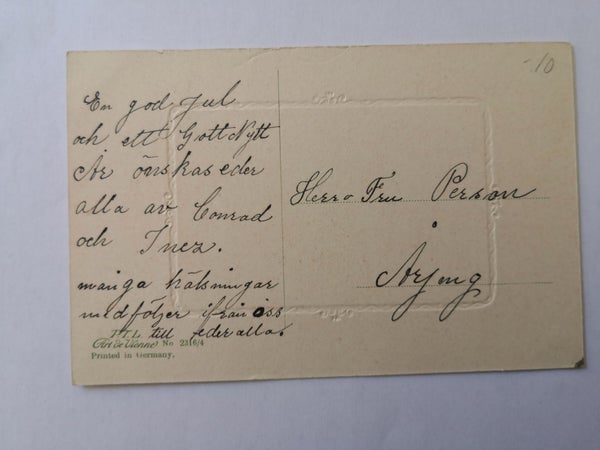 -10
En god Jul
och ett Gott Nytt
År önskas eder
alla av Conrad
och Inez.
många hälsningar
medföljer ifrån oss
till eder alla.
Herr o Fru Person
Årjeng
Art de Vienne No 2316/4
Printed in Germany.